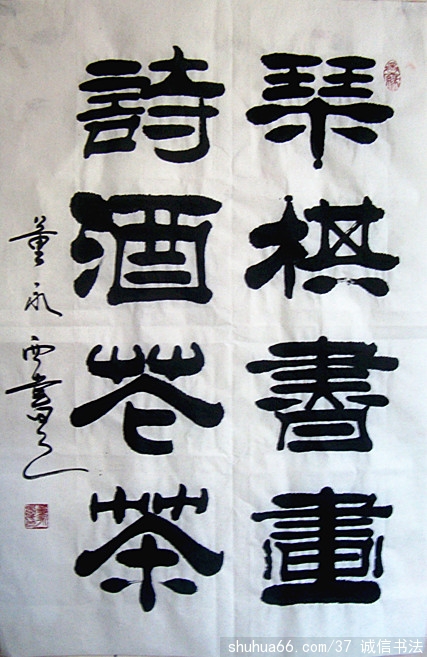 琴棋書畫
詩酒花茶
董永西書
shuhua66.com/37 诚信书法